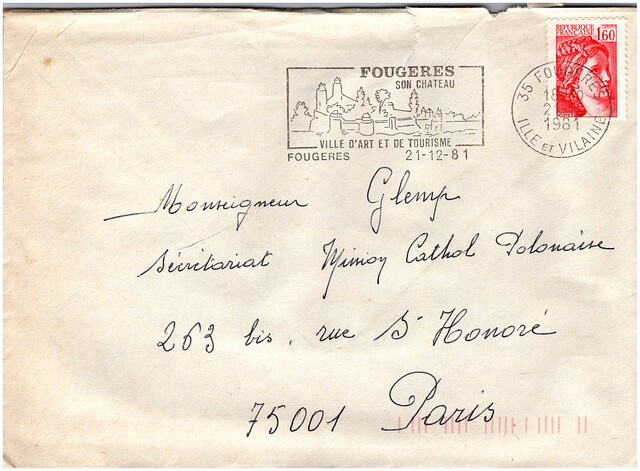 REPUBLIQUE FRANÇAISE 1,60
FOUGERES
SON CHATEAU
VILLE D'ART ET DE TOURISME
FOUGERES 21-12-81
35 FOUGERES
1981
ILLE ET VILAINE
Monseigneur Glemp
Sécrétariat Mission Cathol Polonaise
263 bis, rue St Honoré
75001 Paris